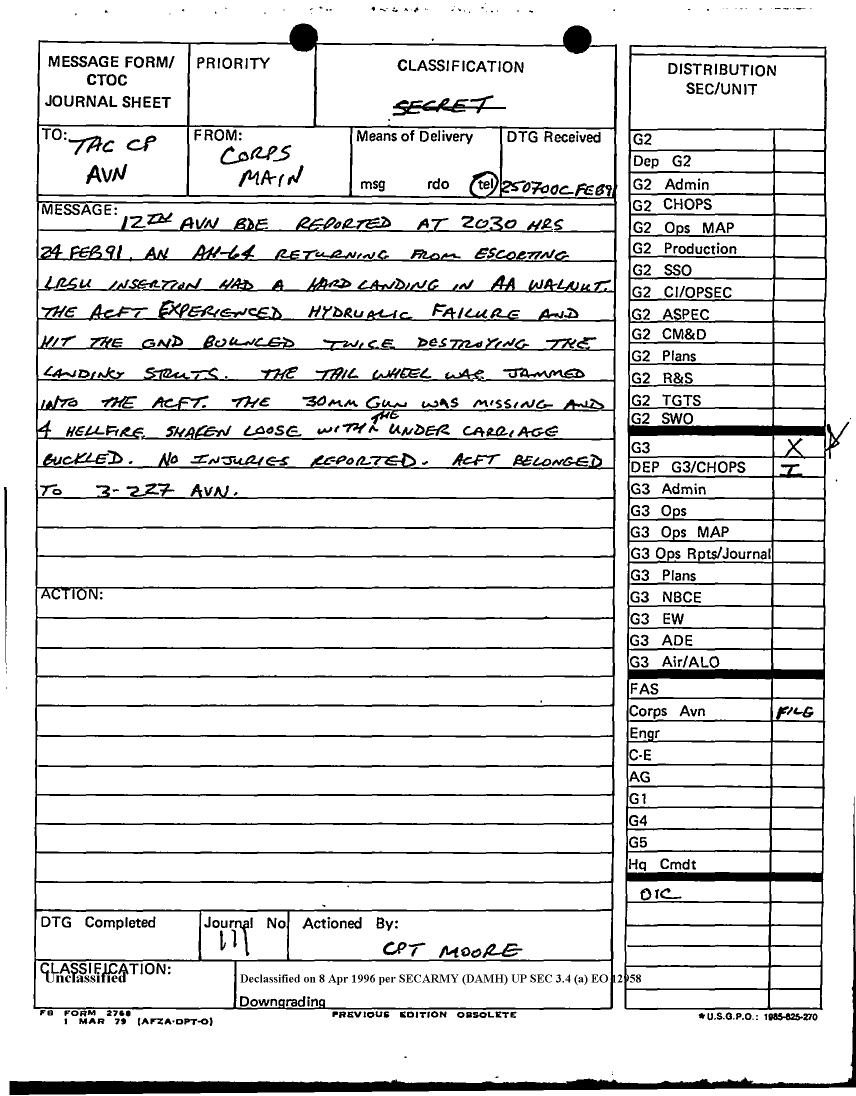 MESSAGE FORM/
CTOC
JOURNAL SHEET
PRIORITY
CLASSIFICATION
SECRET
TO: TAC CP
AVN
FROM:
CORPS
MAIN
Means of Delivery
msg rdo tel
DTG Received
250700C FEB91
MESSAGE: 12TH AVN BDE REPORTED AT 2030 HRS
24 FEB91. AN AH-64 RETURNING FROM ESCORTING
LRSU INSERTION HAD A HARD LANDING IN AA WALNUT.
THE ACFT EXPERIENCED HYDRUALIC FAILURE AND
HIT THE GND BOUNCED TWICE DESTROYING THE
LANDING STRUTS. THE TAIL WHEEL WAS JAMMED
INTO THE ACFT. THE 30MM GUN WAS MISSING AND
4 HELLFIRE SHAKEN LOOSE WITH THE UNDER CARRIAGE
BUCKLED. NO INJURIES REPORTED. ACFT BELONGED
TO 3-227 AVN.
ACTION:
DTG Completed
Journal No.
111
Actioned By:
CPT MOORE
CLASSIFICATION:
Unclassified
Declassified on 8 Apr 1996 per SECARMY (DAMH) UP SEC 3.4 (a) EO 12958
Downgrading
FB FORM 2768
1 MAR 79 (AFZA-DPT-O)
PREVIOUS EDITION OBSOLETE
DISTRIBUTION
SEC/UNIT
G2
Dep G2
G2 Admin
G2 CHOPS
G2 Ops MAP
G2 Production
G2 SSO
G2 CI/OPSEC
G2 ASPEC
G2 CM&D
G2 Plans
G2 R&S
G2 TGTS
G2 SWO
G3 X
DEP G3/CHOPS I
G3 Admin
G3 Ops
G3 Ops MAP
G3 Ops Rpts/Journal
G3 Plans
G3 NBCE
G3 EW
G3 ADE
G3 Air/ALO
FAS
Corps Avn FILE
Engr
C-E
AG
G1
G4
G5
Hq Cmdt
OIC
*U.S.G.P.O.: 1985-625-270